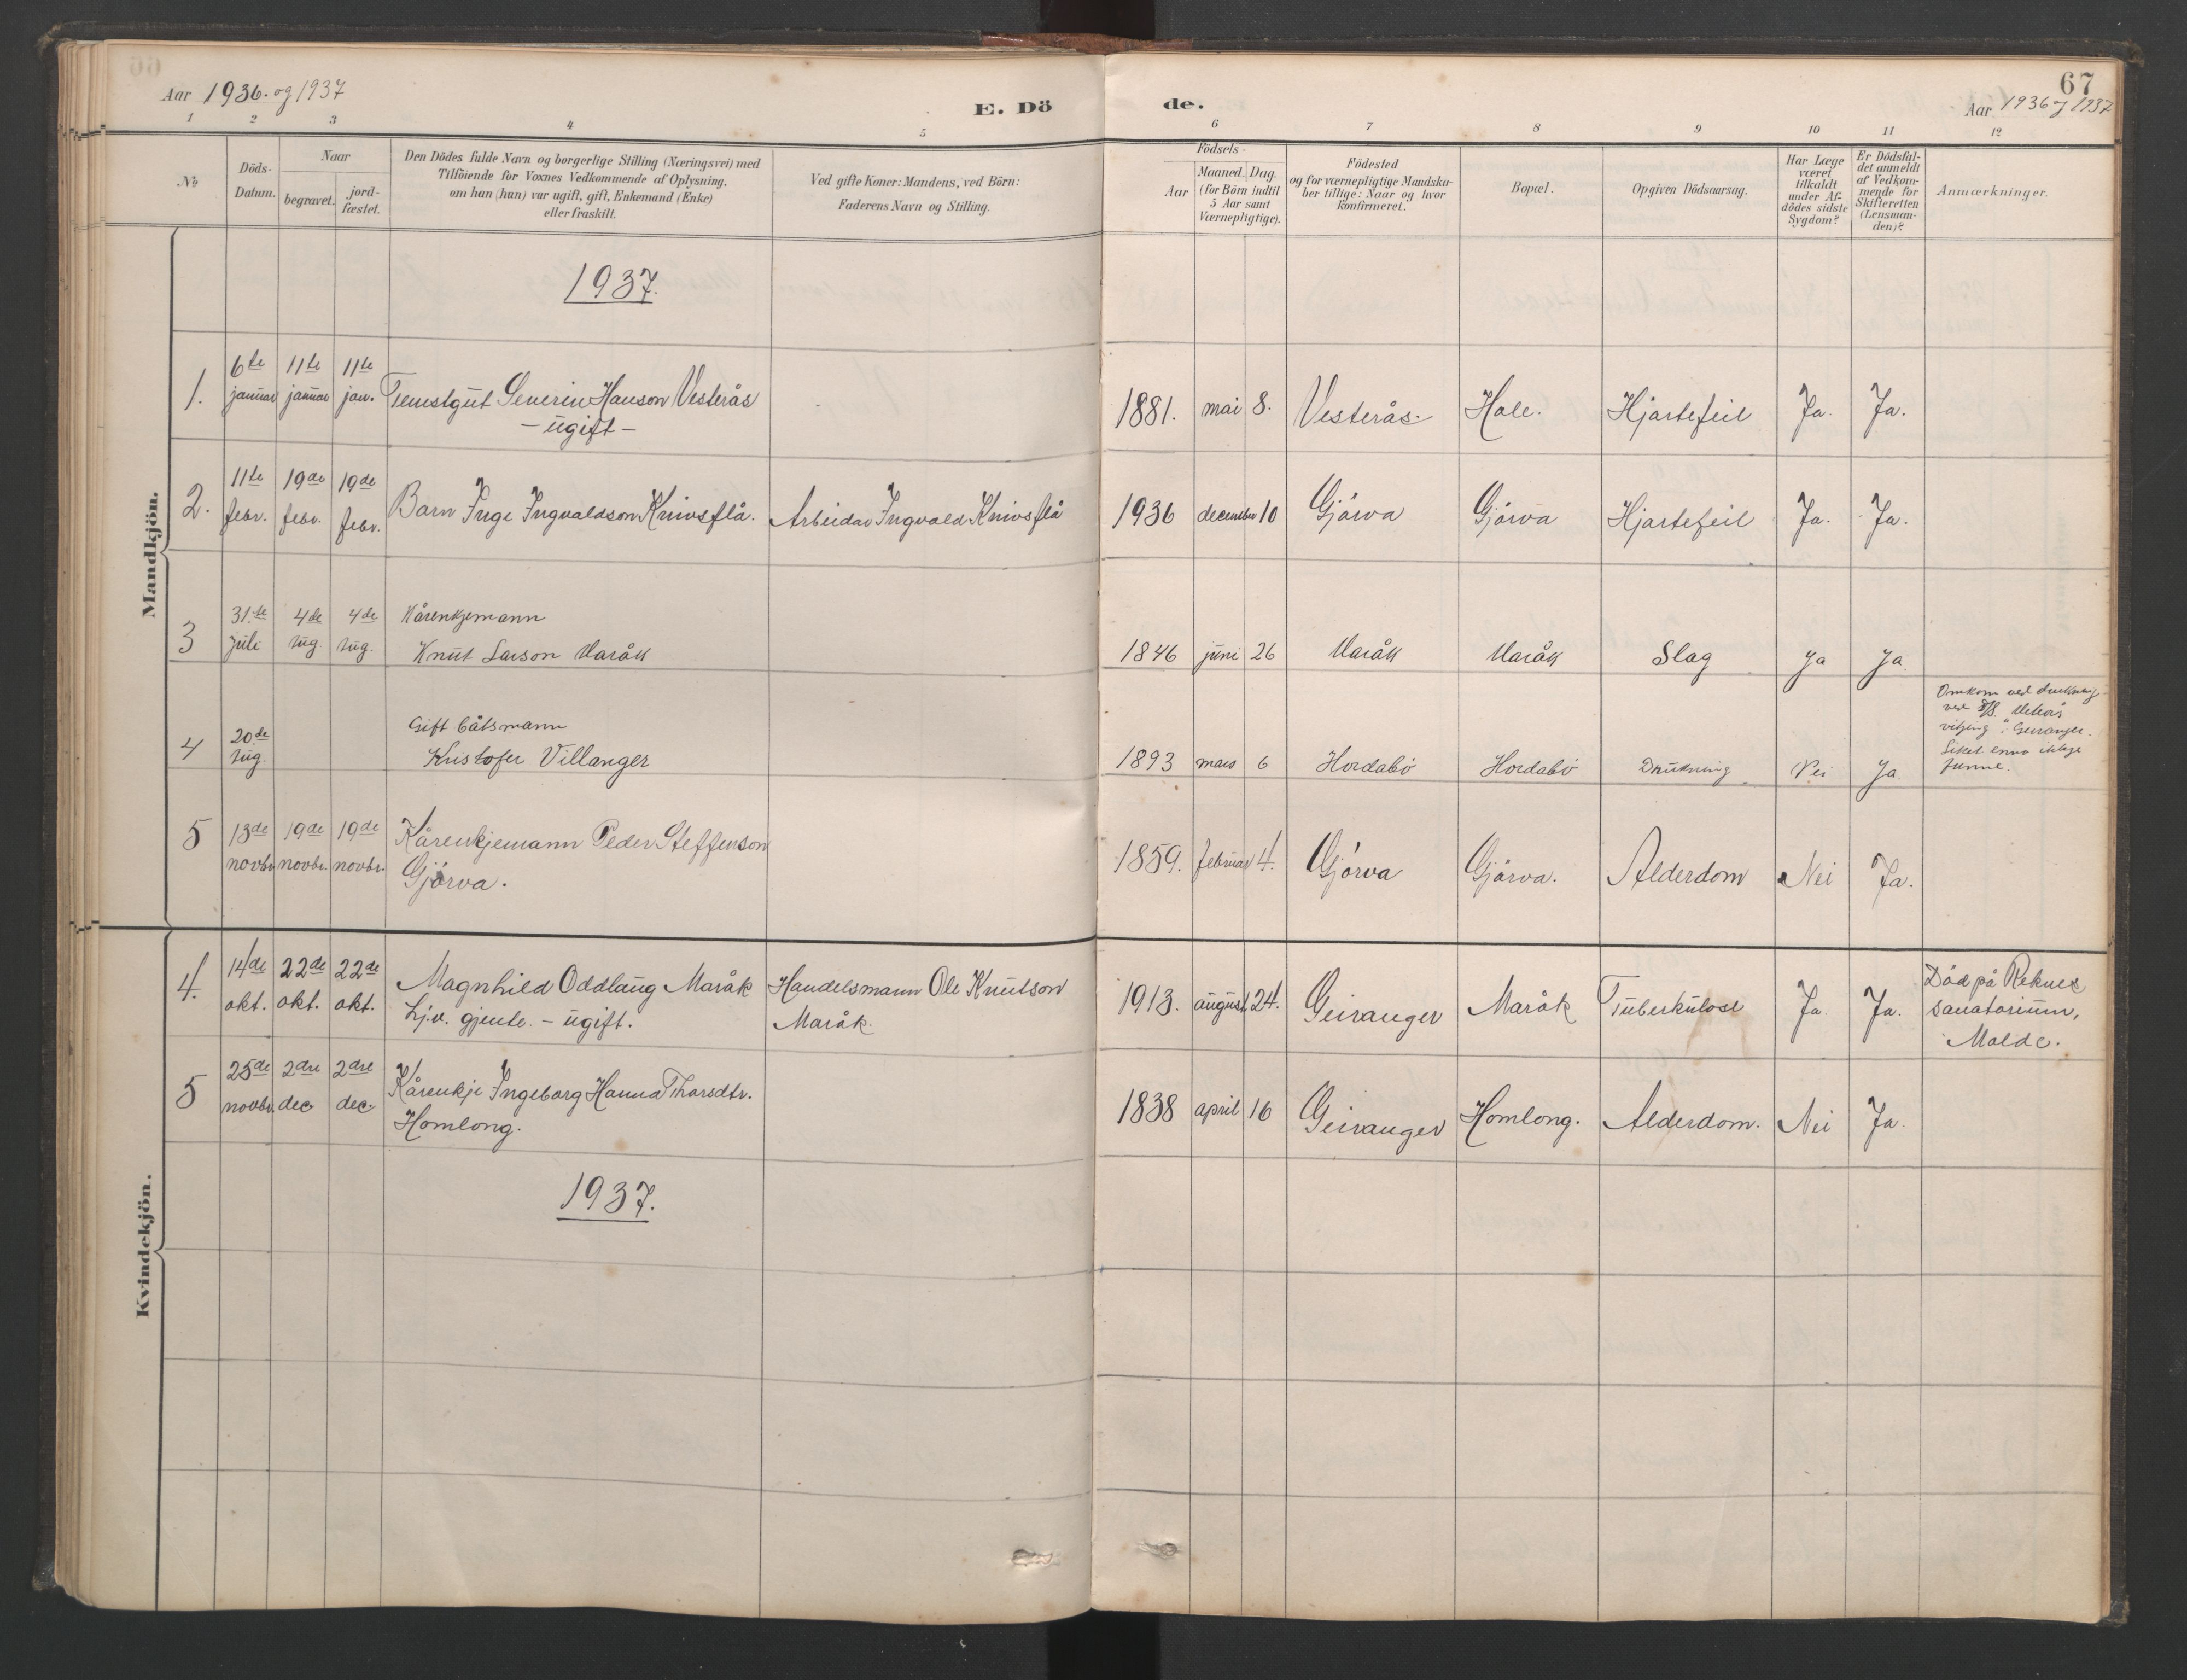 Aar 1936. og 1937
E. Dö
de.
67
Aar 1936 og 1937
1 2 3 4 5 6 7 8 9 10 11 12
No
Döds-
Datum.
Naar
begravet.
jord-
fæstet.
Den Dödes fulde Navn og borgerlige Stilling (Næringsvei) med
Tilföiende for Voxnes Vedkommende af Oplysning,
om han (hun) var ugift, gift, Enkemand (Enke)
eller fraskilt.
Ved gifte Koner: Mandens, ved Börn:
Faderens Navn og Stilling.
Födsels-
Aar
Maaned. Dag.
(for Börn indtil
5 Aar samt
Værnepligtige).
Födested
og for værnepligtige Mandska-
ber tillige: Naar og hvor
konfirmeret.
Bopæl.
Opgiven Dödsaarsag.
Har Læge
været
tilkaldt
under Af-
dödes sidste
Sygdom?
Er Dödsfal-
det anmeldt
af Vedkom-
mende for
Skifteretten
(Lensman-
den)?
Anmærkninger.
Mandkjön.
1937.
1. 6te januar 11te januar 11te jan. Tenestgut Severin Hanson Vesterås
- ugift -
1881. mai 8. Vesterås. Hole. Hjartefeil Ja. Ja.
2. 11te febr. 19de febr. 19de febr. Barn Inge Ingvaldson Knivsflå. Arbeidar Ingvald Knivsflå 1936 december 10 Gjörva Gjörva Hjartefeil Ja. Ja.
3 31.te juli 4de aug. 4de aug. Kårenkjemann
Knut Larson Maråk
1846 juni 26 Maråk Maråk Slag Ja Ja
4 20.de aug. Gift båtsmann
Kristofer Villanger
1893 mars 6 Hordabö Hordabö Drukning Nei Ja
Omkom ved drukning
ved
vitjing i Geiranger.
Liket enno ikkje
funne.
5 13de novbr. 19de novbr. 19de novbr. Kårenkjemann Peder Steffenson
Gjörva.
1859. februar 4. Gjörva Gjörva. Alderdom Nei Ja.
Kvindekjön.
4. 14de okt. 22de okt. 22de okt. Magnhild Oddlaug Maråk
hj.v. gjente. - ugift.
Handelsmann Ole Knutson
Maråk.
1913. august 24. Geiranger Maråk Tuberkulose Ja. Ja.
Död på Reknes
sanatorium,
Molde.
5 25de novbr. 2dre dec. 2dre dec. Kårenkje Ingeborg Hanna Thorsdtr.
Homlong.
1838 april 16 Geiranger Homlong. Alderdom. Nei Ja.
1937.